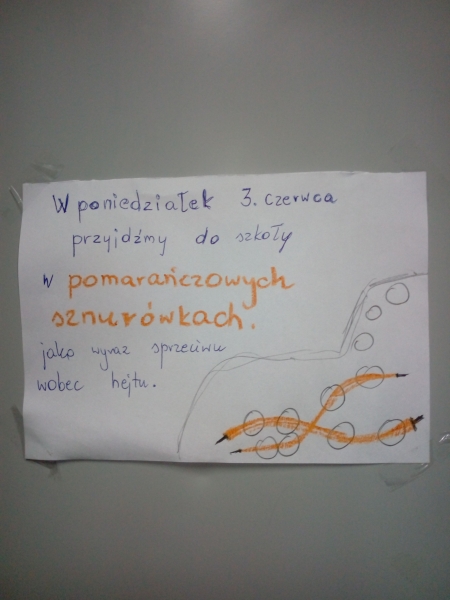 W poniedziałek 3. czerwca
przyjdźmy do szkoły
w pomarańczowych
sznurówkach.
jako wyraz sprzeciwu
wobec hejtu.